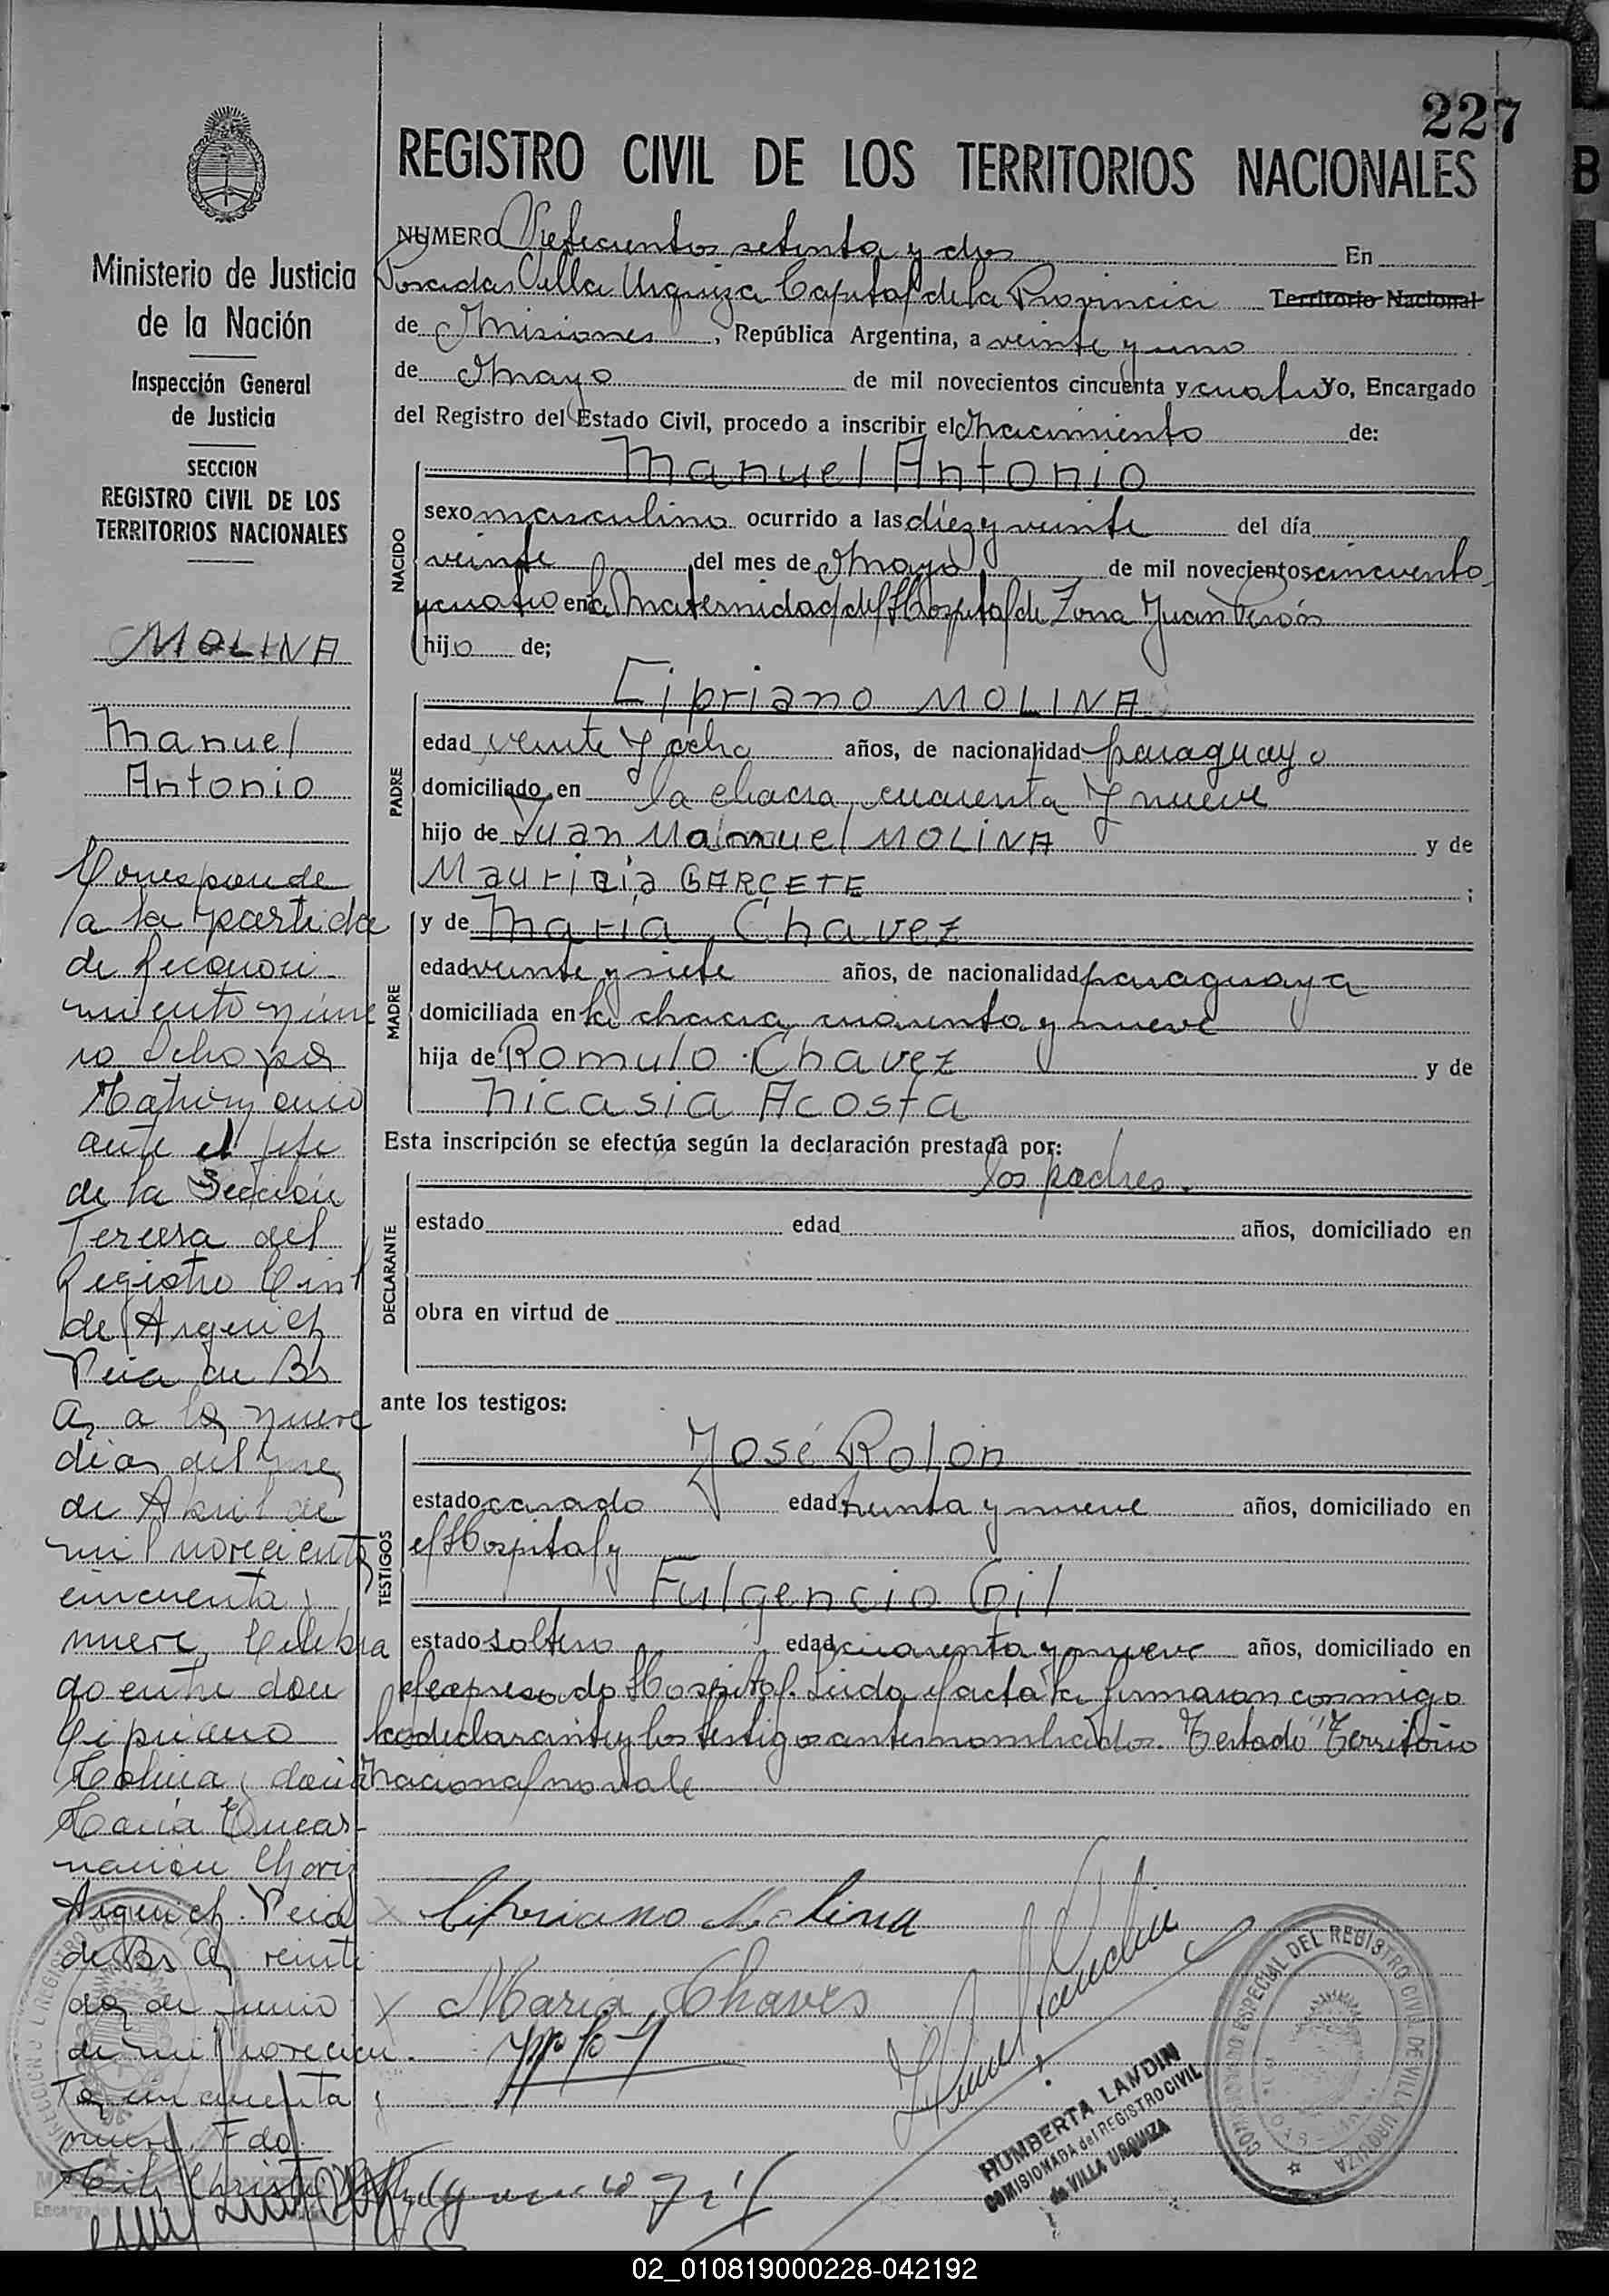 227
REGISTRO CIVIL DE LOS TERRITORIOS NACIONALES
Ministerio de Justicia
de la Nación
Inspección General
de Justicia
SECCION
REGISTRO CIVIL DE LOS
TERRITORIOS NACIONALES
MOLINA
Manuel
Antonio
Corresponde
a la partida
de Reconoci-
miento núme
ro Ocho por
Matrimonio
ante el jefe
de la Sección
Tercera del
Registro Civil
de Azquiel
Pcia de Bs
As a los nueve
dias del mes
de Abril de
mil novecientos
cincuenta y
nueve, Celebra
do entre don
Cipriano
Molina y doña
María Encar-
nación
Pcia
de Bs As veinte
dos de junio
de mil novecien-
tos cincuenta y
nueve. Fdo
NUMERO Setecientos setenta y dos En
Posadas Villa Urquiza Capital de la Provincia Territorio Nacional
de Misiones, República Argentina, a veinte y uno
de Mayo de mil novecientos cincuenta y cuatro Yo, Encargado
del Registro del Estado Civil, procedo a inscribir el Nacimiento de:
Manuel Antonio
NACIDO
sexo masculino ocurrido a las diez y veinte del día
veinte del mes de Mayo de mil novecientos cincuenta
y cuatro en la Maternidad del Hospital de Zona Juan Perón
hijo de;
Cipriano MOLINA
PADRE
edad veinte y ocho años, de nacionalidad paraguayo
domiciliado en la chacra cuarenta y nueve
hijo de Juan Manuel MOLINA y de
Mauricia GARCETE ;
MADRE
y de Maria Chavez
edad veinte y siete años, de nacionalidad paraguaya
domiciliada en la chacra cuarenta y nueve
hija de Romulo Chavez y de
Nicasia Acosta
Esta inscripción se efectúa según la declaración prestada por:
los padres.
DECLARANTE
estado edad años, domiciliado en
obra en virtud de
ante los testigos:
José Rolón
TESTIGOS
estado casado edad treinta y nueve años, domiciliado en
el Hospital y
Fulgencio Gil
estado soltero edad cuarenta y nueve años, domiciliado en
el expresado Hospital. Leida el acta la firmaron conmigo
los declarantes y los testigos antes nombrados. Testado "Territorio
Nacional no vale
x Cipriano Molina
x Maria Chaves
HUMBERTA LANDIN
COMISIONADA del REGISTRO CIVIL
de VILLA URQUIZA
COMISIONADO ESPECIAL DEL REGISTRO CIVIL DE VILLA URQUIZA
02_010819000228-042192